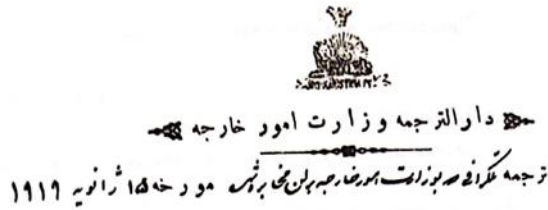 دارالترجمه وزارت امور خارجه
ترجمه تلگرافی که بوزارت امور خارجه برلن مخابره شده مورخه ۱۵ ژانویه ۱۹۱۹